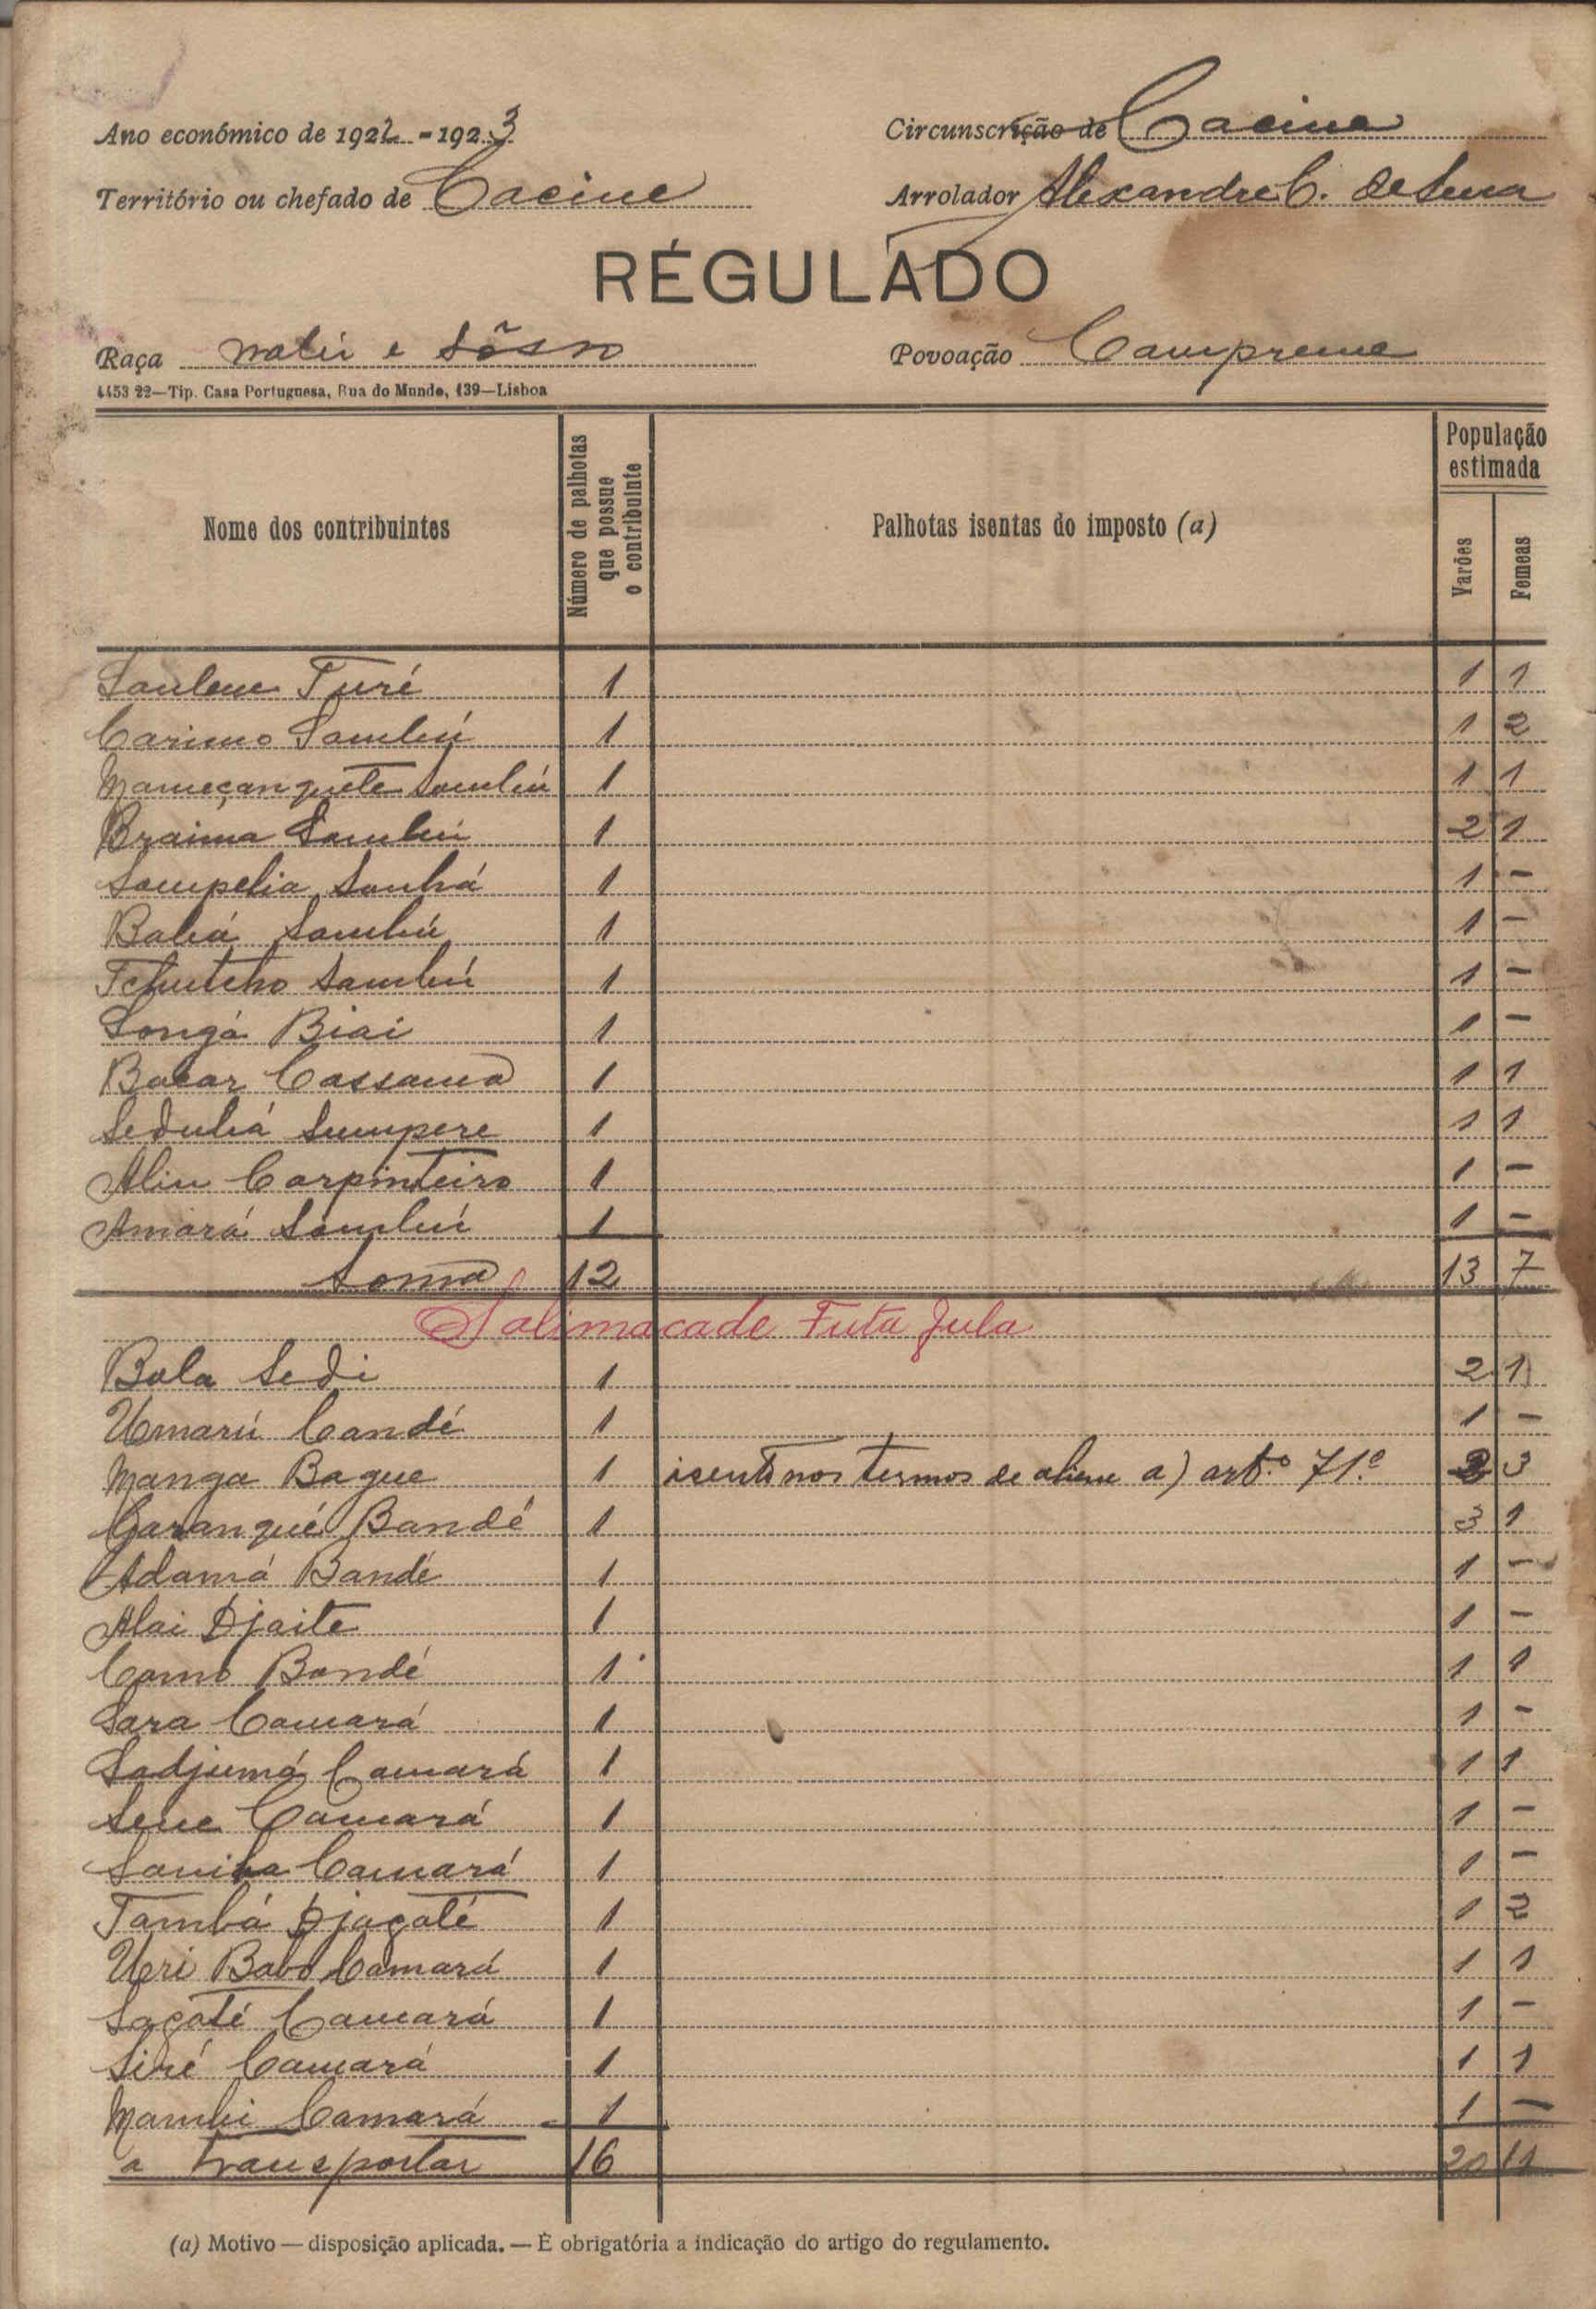 Ano económico de 1922-1923
Circunscrição de Cacine
Território ou chefado de Cacine
Arrolador Alexandre C. de Sena
RÉGULADO
Raça nalú e sôsso
Povoação Campreme
4453 22—Tip. Casa Portuguesa, Rua do Mundo, 139—Lisboa
Nome dos contribuintes
Número de palhotas que possue o contribuinte
Palhotas isentas do imposto (a)
População estimada
Varões
Femeas
Turé 1 1 1
Carimo Sambú 1 1 2
Sambú 1 1 1
Braima Sambú 1 2 1
Sampelia Sanhá 1 1 -
Babá Sambú 1 1 -
Tchutcho Sambú 1 1 -
Songá Biai 1 1 -
Bacar Cassama 1 1 1
Sumpere 1 1 1
Aliu Carpinteiro 1 1 -
Amará Sambú 1 1 -
Soma 12 13 7
Salimacade Futa Jula
Bala Sedi 1 2 1
Umarú Candé 1 1 -
Manga Bague 1 isento nos termos de aliene a) artº 71º 2 3
Garanqué Bandé 1 3 1
Adamá Bandé 1 1 -
Alai Djaite 1 1 -
Camo Bandé 1 1 1
Sara Camará 1 1 -
Sadjumá Camará 1 1 1
Sene Camará 1 1 -
Camará 1 1 -
Tambá Djaçaté 1 1 2
Uri Babo Camará 1 1 1
Saçaté Camará 1 1 -
Siré Camará 1 1 1
Mambi Camará 1 1 -
a transportar 16 20 11
(a) Motivo — disposição aplicada. — É obrigatória a indicação do artigo do regulamento.